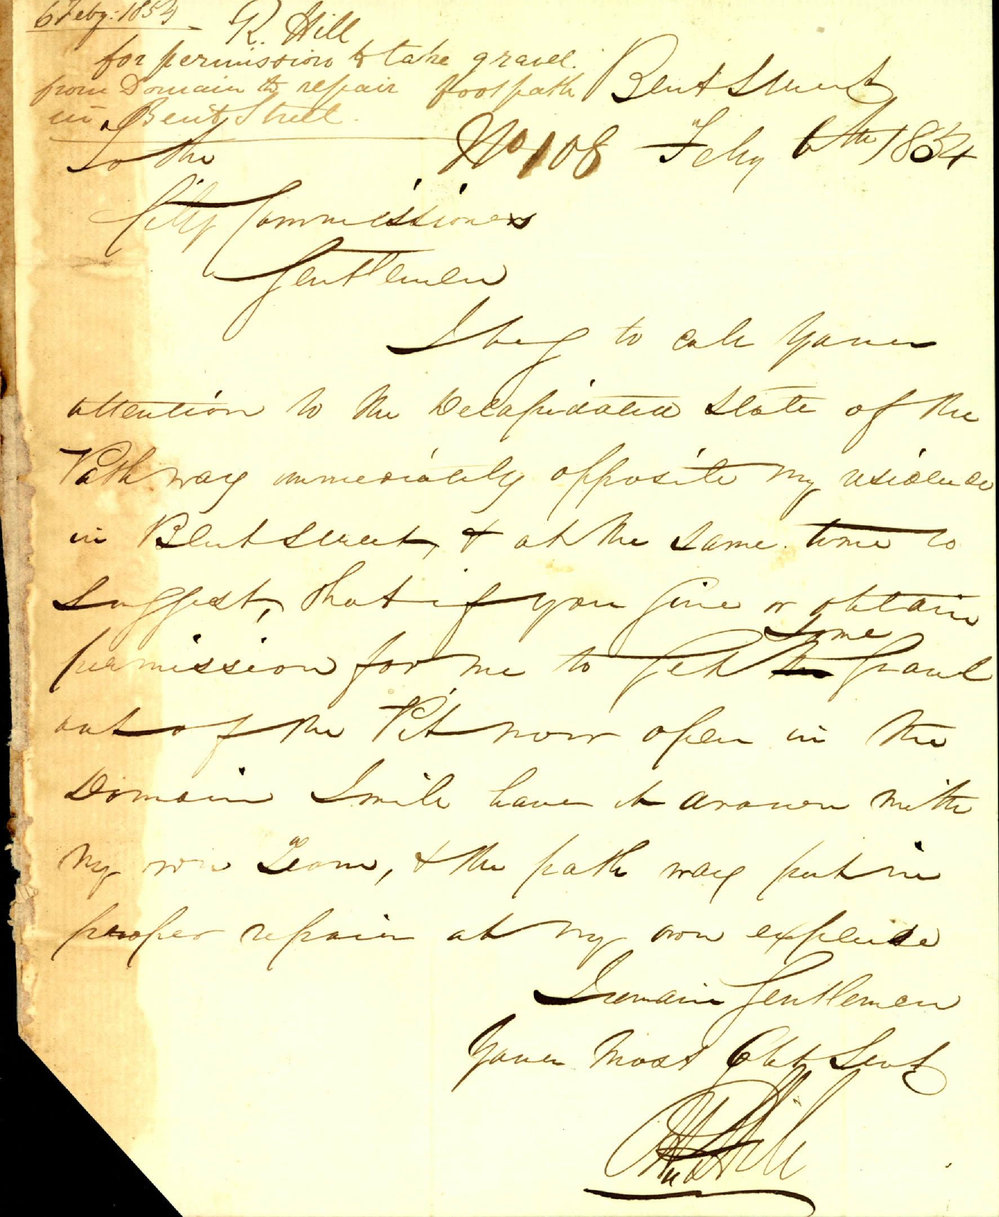 6 Feby: 1854
R. Hill
for permission to take gravel
from Domain to repair footpath
in Bent Street.
Bent Street
No 108 Feby 6th 1854
To the
City Commissioners
Gentlemen
I beg to call Your
attention to the Delapidated state of the
Path way immediately opposite my residence
in Bent Street, & at the same time to
suggest, that if you give or obtain
permission for me to Get the some Gravel
out of the Pit now open in the
Domain I will have it drawn with
my own Team, & the path way put in
proper repair at my own expense
I remain Gentlemen
Your Most Obt Servt
Hill